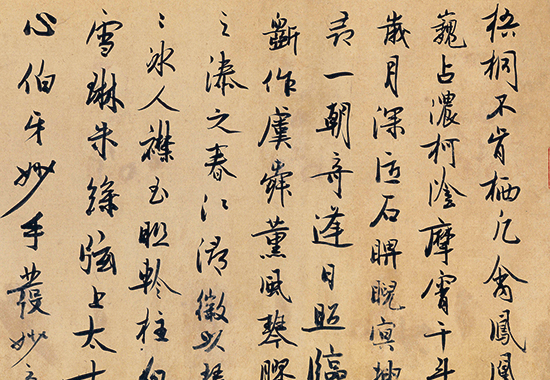 梧桐不肯栖凡禽鳳凰
巍占濃柯陰摩霄千斗
歲月深匠石睥睨寅搜
尋一朝奇逢日照臨
斲作虞舜薰風琴
之漆之春江潯徽以
冰人襟玉軫柱
雪琳朱絲弦上太古
心伯牙妙手發妙